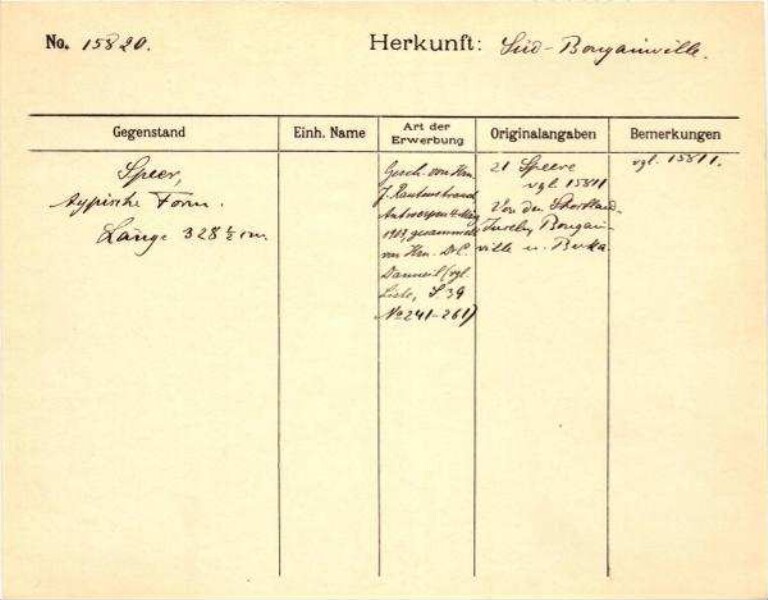 No. 15820. Herkunft: Süd-Bougainville.
Gegenstand Einh. Name Art der Erwerbung Originalangaben Bemerkungen
Speer,
typische Form.
Länge 328 ½ cm.
Gesch. von Hrn.
J. Rautenstrauch
Antwerpen 4. März
1913, gesammelt
von Hrn. Dr. C.
Danneil (vgl.
Liste, S. 39
No 241-261)
21 Speere
vgl. 15811
Von den Shortland-
Inseln, Bougain-
ville u. Buka.
vgl. 15811.